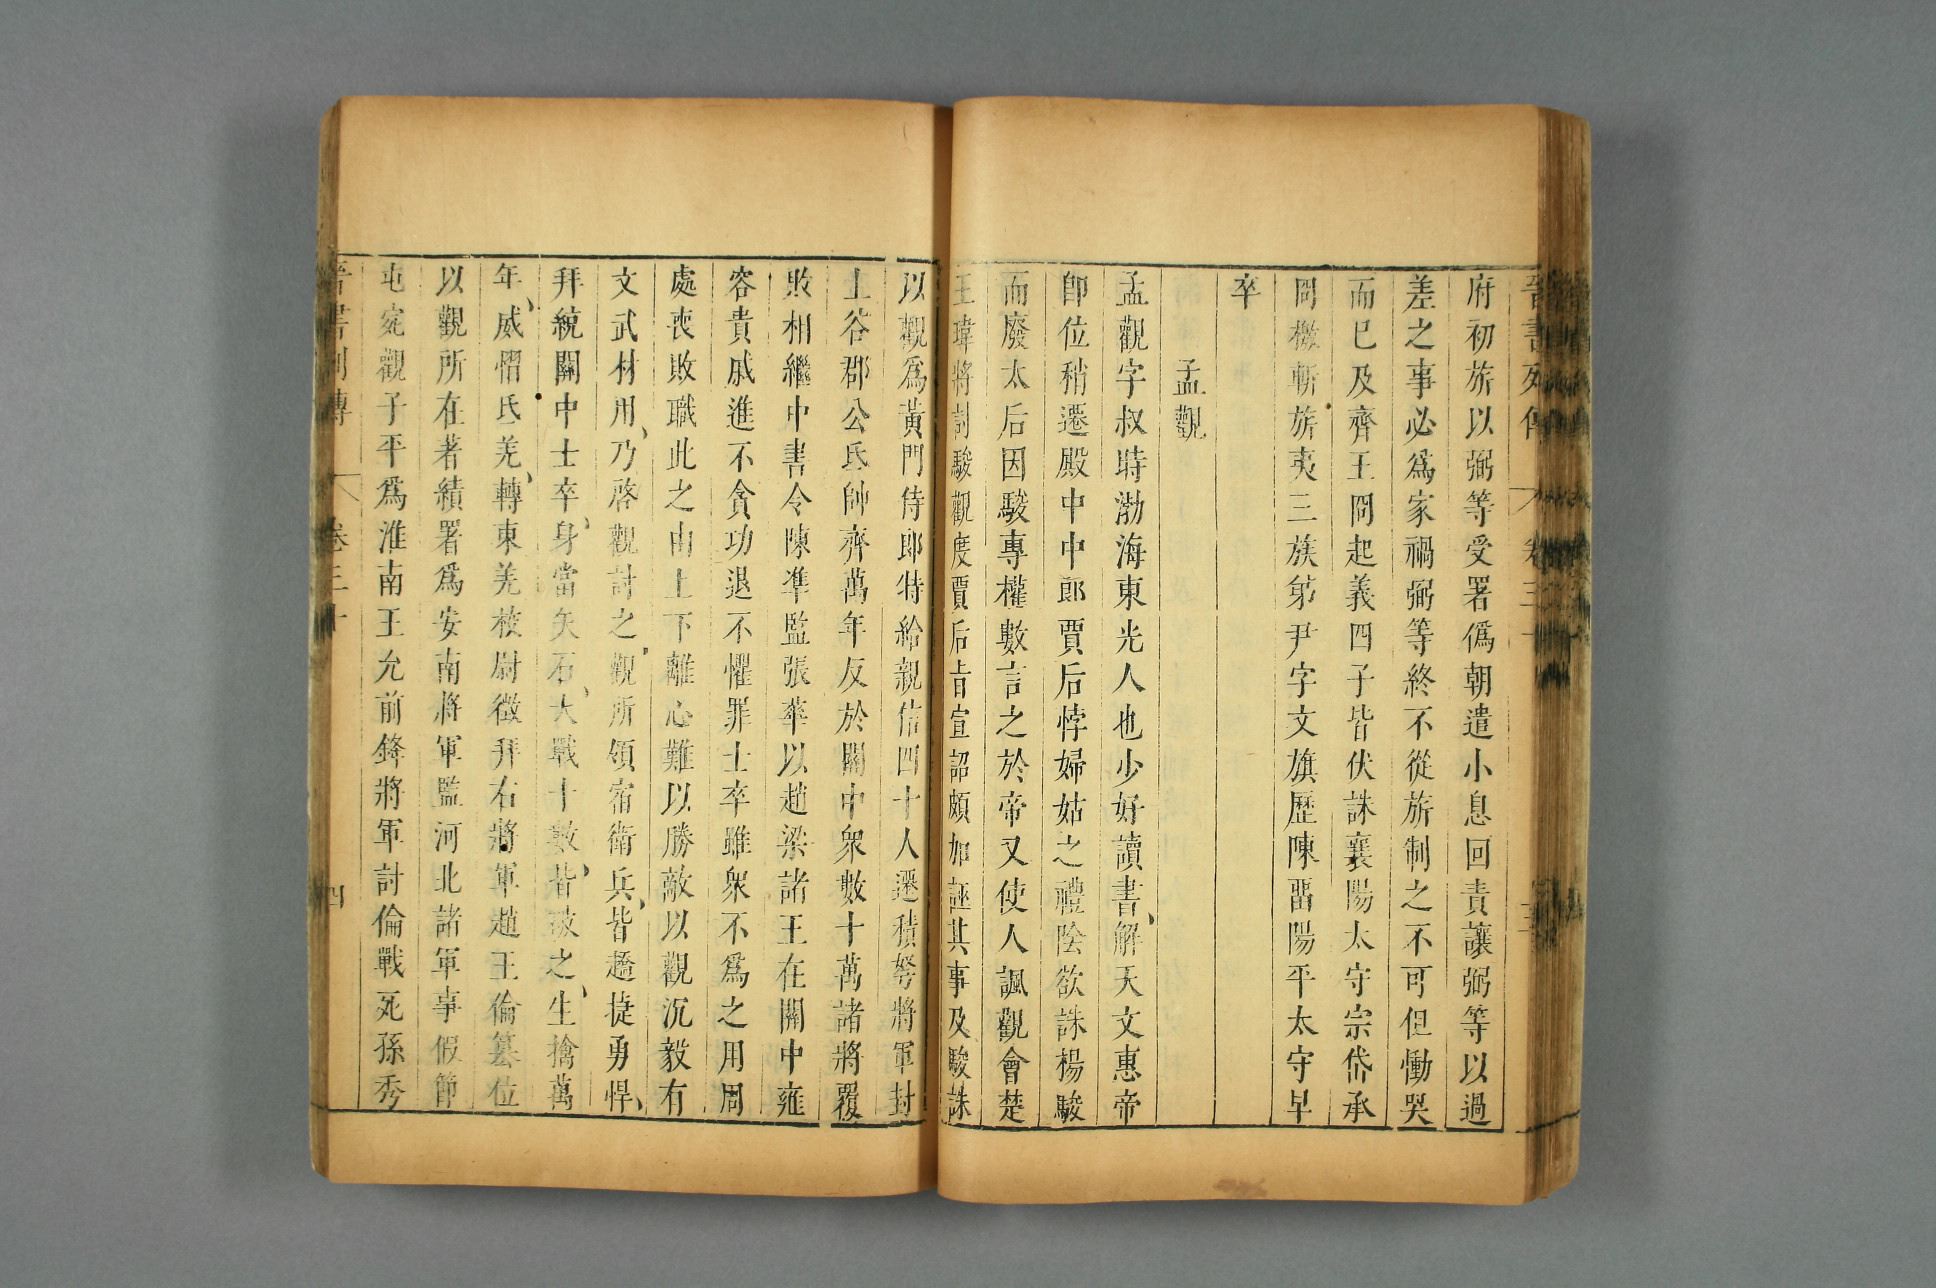 晉書列傳 卷三十 三
府初旂以弼等受署僞朝遣小息回責讓弼等以過
差之事必爲家禍弼等終不從旂制之不可但慟哭
而已及齊王冏起義四子皆伏誅襄陽太守宗岱承
冏檄斬旂夷三族弟尹字文旗歷陳畱陽平太守早
卒
孟觀
孟觀字叔時渤海東光人也少好讀書解天文惠帝
卽位稍遷殿中中郎賈后悖婦姑之禮陰欲誅楊駿
而廢太后因駿專權數言之於帝又使人諷觀會楚
王瑋將討駿觀度賈后旨宣詔頗加誣其事及駿誅
以觀爲黃門侍郎特給親信四十人遷積弩將軍封
上谷郡公氐帥齊萬年反於關中衆數十萬諸將覆
敗相繼中書令陳準監張華以趙梁諸王在關中雍
容貴戚進不貪功退不懼罪士卒雖衆不爲之用周
處喪敗職此之由上下離心難以勝敵以觀沉毅有
文武材用乃啓觀討之觀所領宿衛兵皆趫捷勇悍
拜統關中士卒身當矢石大戰十數皆破之生擒萬
年威慴氐羌轉東羌校尉徵拜右將軍趙王倫簒位
以觀所在著績署爲安南將軍監河北諸軍事假節
屯宛觀子平爲淮南王允前鋒將軍討倫戰死孫秀
晉書列傳 卷三十 四